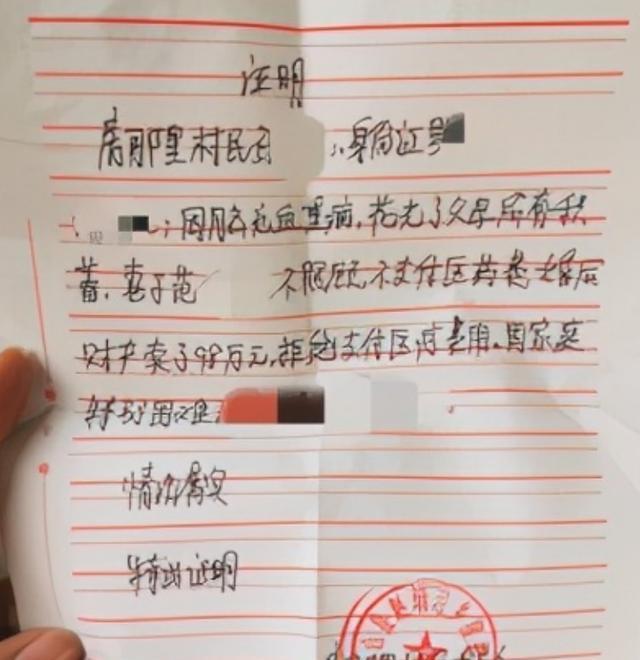 证明
村民 身份证号
因 脑出血重病,花光了父母所有积
蓄,妻子范 不照顾,不支付医药费,婚后
财产卖了98万元,拒绝支付医疗费用,因家庭
特别困难
情况属实
特此证明